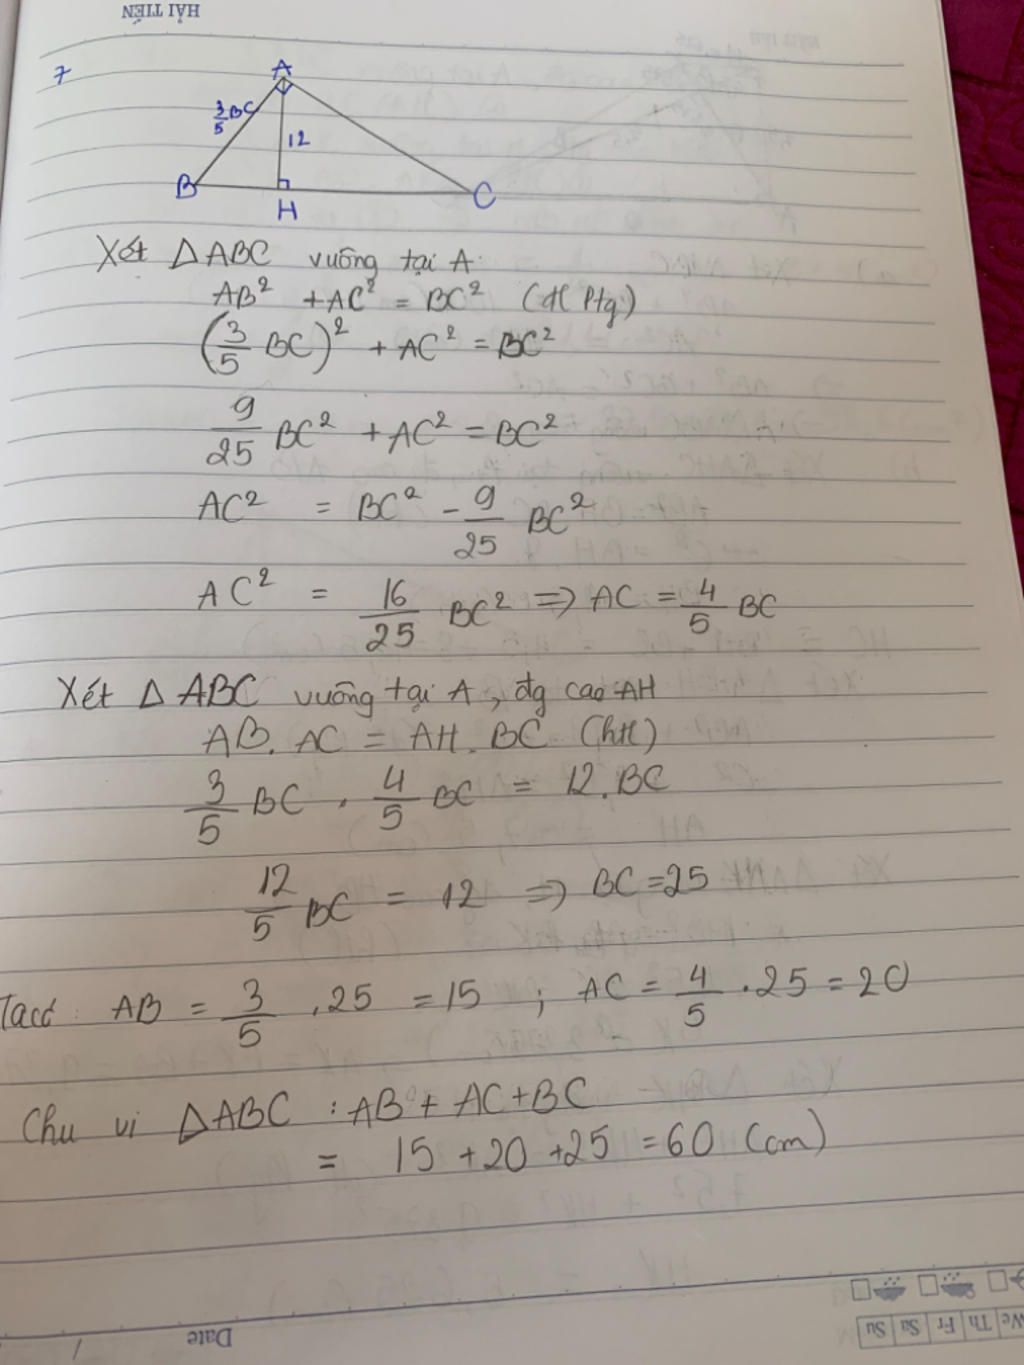 HẢI TIẾN
7
A
3/5 BC
12
B
H
C
Xét △ABC vuông tại A:
AB² + AC² = BC² (đl Ptg)
(3/5 BC)² + AC² = BC²
9/25 BC² + AC² = BC²
AC² = BC² - 9/25 BC²
AC² = 16/25 BC² => AC = 4/5 BC
Xét △ABC vuông tại A, đg cao AH
AB. AC = AH. BC (htl)
3/5 BC . 4/5 BC = 12. BC
12/5 BC = 12 => BC = 25
Ta có: AB = 3/5 . 25 = 15 ; AC = 4/5 . 25 = 20
Chu vi △ABC : AB + AC + BC
= 15 + 20 + 25 = 60 (cm)
We Th Fr Sa Su
Date /